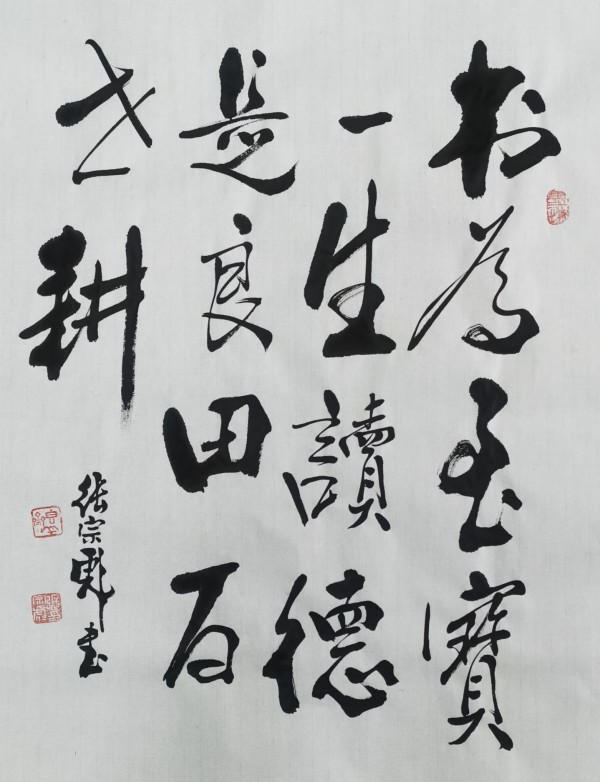 书為至寶
一生讀德
是良田百
世耕
張宗彪書